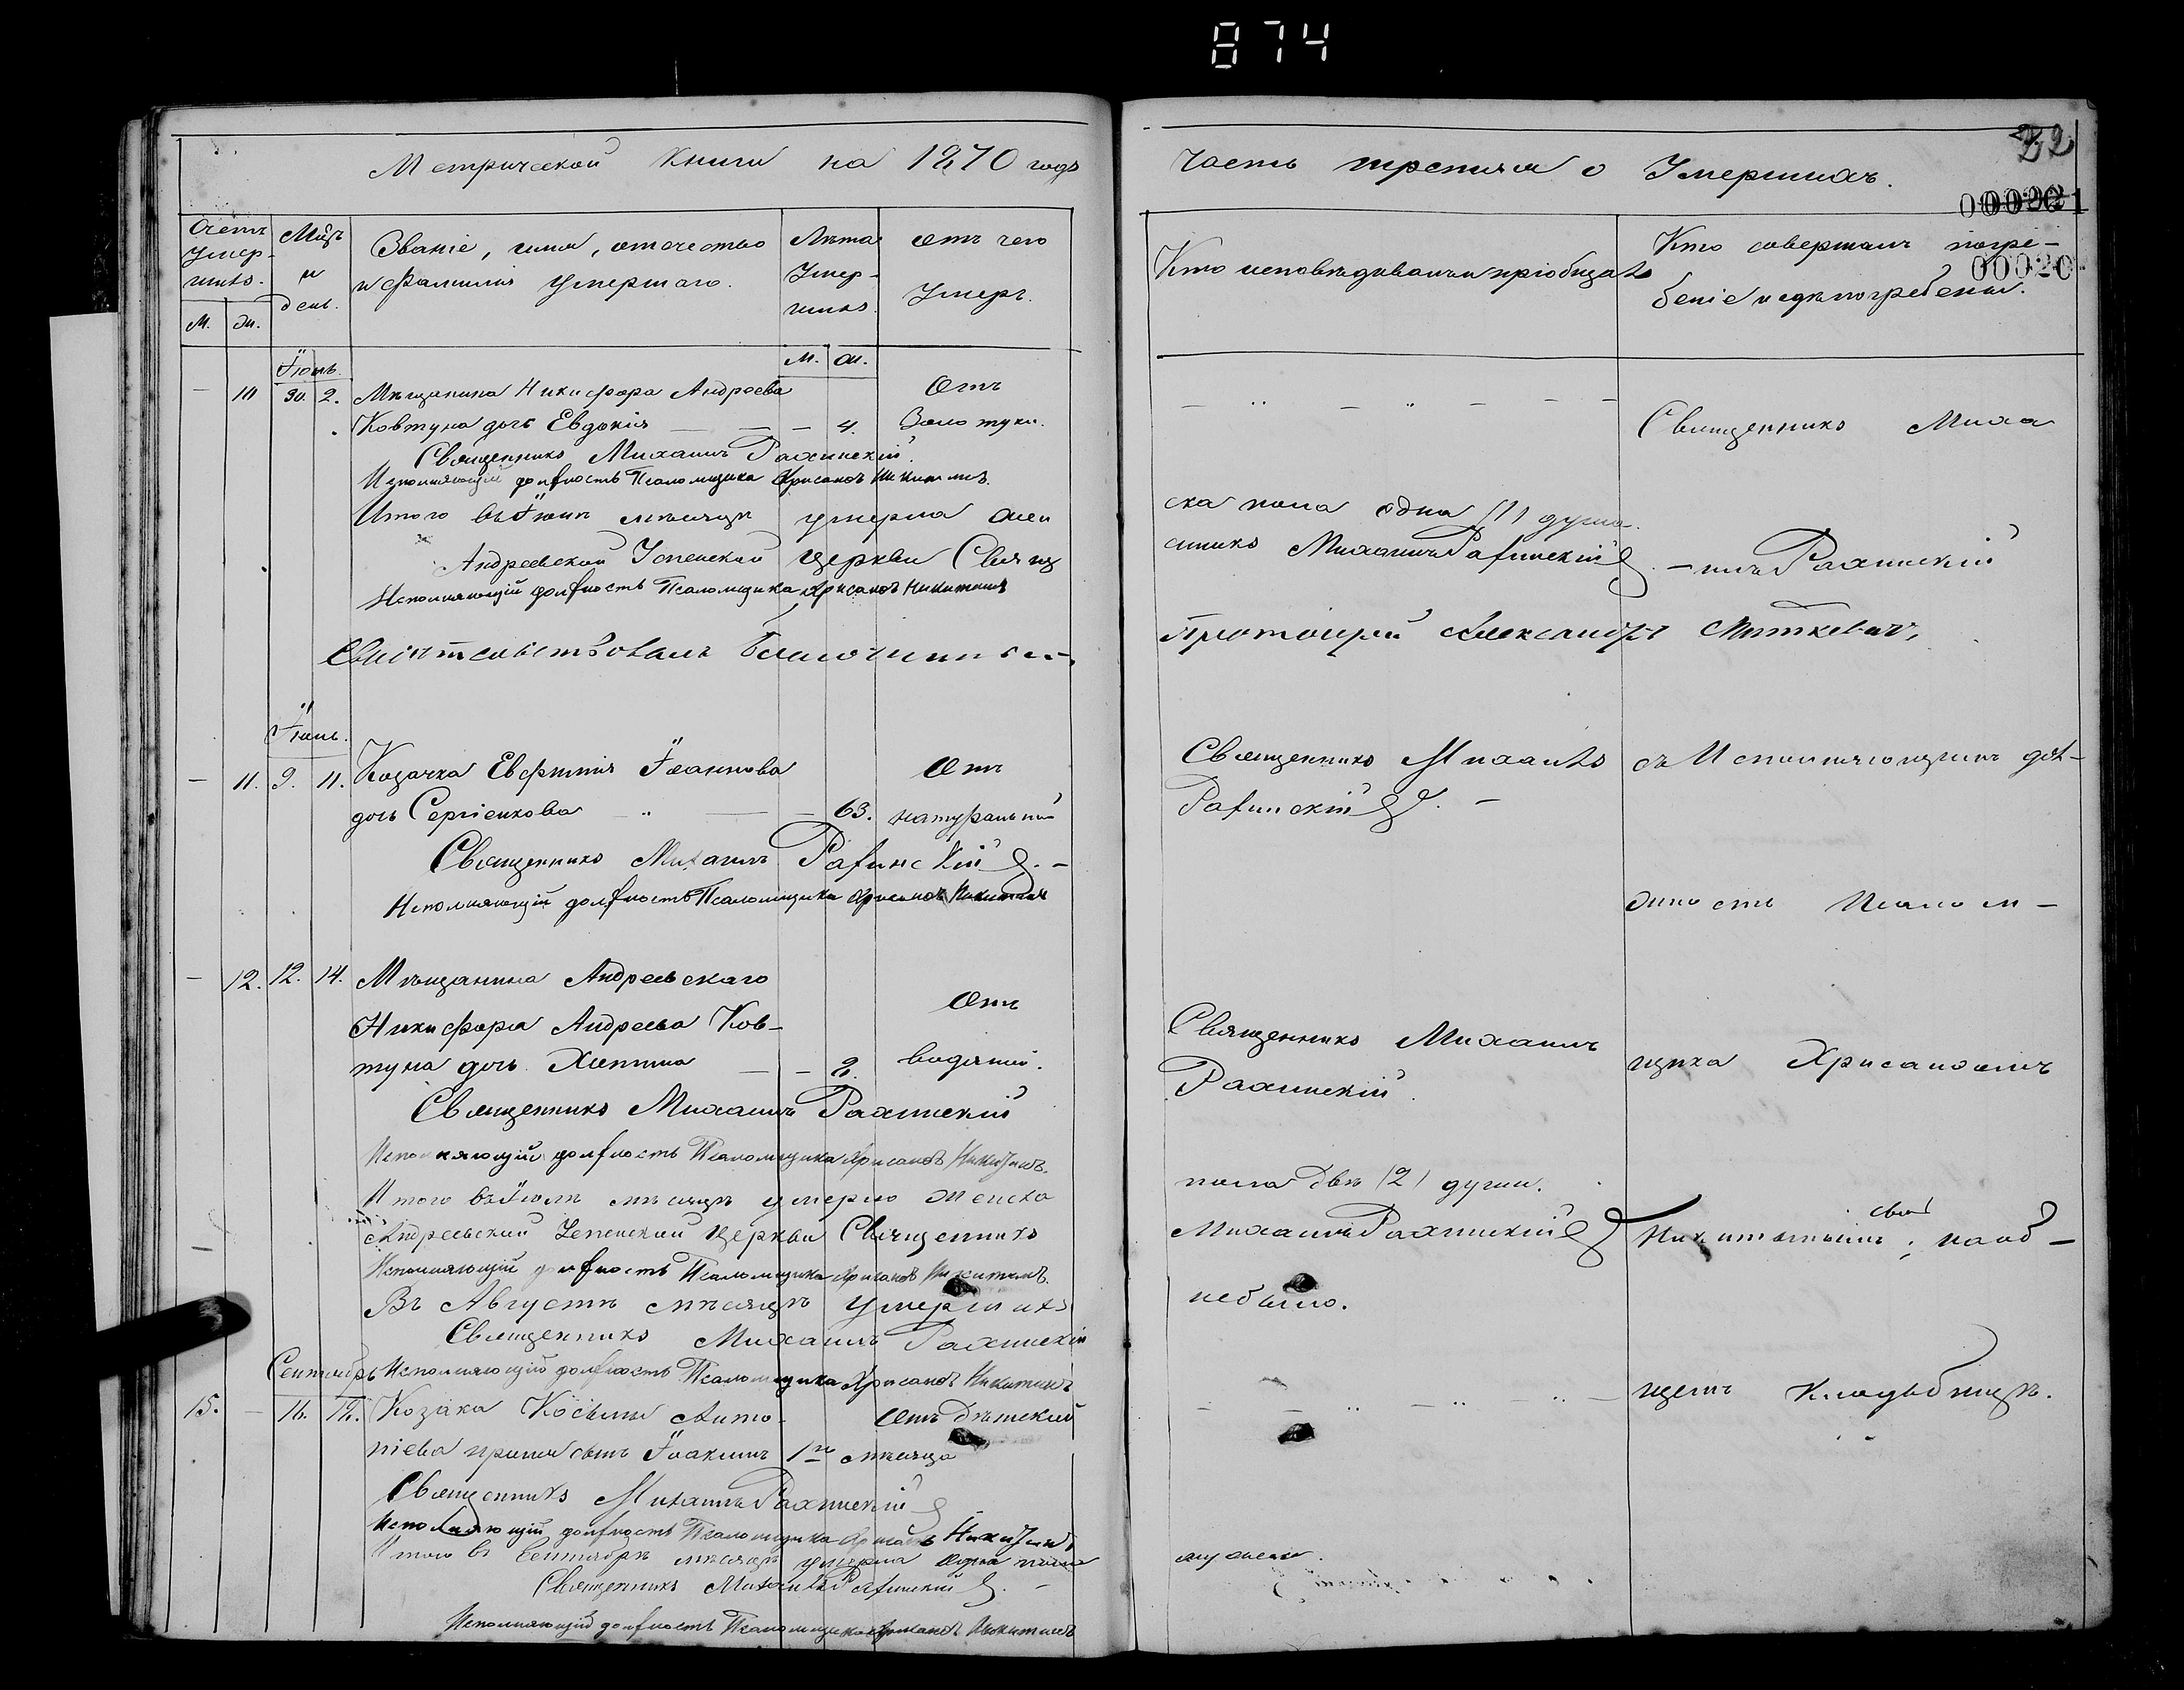 874
Метрической книги на 1870 годъ
Счетъ Умер-шихъ.
М. Ж.
Мѣцъ и день.
Званіе, имя, отечество и Фамилія Умершаго.
Лѣта Умер-шихъ.
М. Ж.
отъ чего Умеръ.
Іюнь.
— 10 30. 2. Мѣщанина Никифора Андреева Отъ
Ковтуна дочь Евдокія — — — 4. Золотухи.
Священникъ Михаилъ Рахинскій.
Исполняющій должность Псаломщика Хрисанѳъ Никитинъ.
Итого въ Іюнѣ мѣсяцѣ умерла жен
Андреевской Успенской церкви Свящ
Исполняющій должность Псаломщика Хрисанѳъ Никитинъ
Свидѣтельствовалъ Благочинный
Іюль.
— 11. 9. 11. Козачка Евфимія Іоаннова Отъ
дочь Сергіенкова — 63. натуральной
Священникъ Михаилъ Рахинскій
Исполняющій должность Псаломщика Хрисанѳъ Никитинъ
— 12. 12. 14. Мѣщанина Андреевскаго
Никифора Андреева Ков- Отъ
туна дочь — — 2. водяной.
Священникъ Михаилъ Рахинскій
Исполняющій должность Псаломщика Хрисанѳъ Никитинъ.
Итого въ Іюлѣ мѣсяцѣ умерло женска
Андреевской Успенской церкви Священникъ
Исполняющій должность Псаломщика Хрисанѳъ Никитинъ.
Въ Августѣ мѣсяцѣ умершихъ
Священникъ Михаилъ Рахинскій
Сентябрь Исполняющій должность Псаломщика Хрисанѳъ Никитинъ
15. — 16. 18. Козака Космы Анто- Отъ дѣтской
ніева сынъ Іоакимъ 1го мѣсяца
Священникъ Михаилъ Рахинскій
Исполняющій должность Псаломщика Хрисанѳъ Никитинъ
Итого въ Сентябрѣ мѣсяцѣ умерла одна
Священникъ Михаилъ Рахинскій
Исполняющій должность Псаломщика Хрисанѳъ Никитинъ
Часть третія о Умершихъ.
22
00020
Кто исповѣдывалъ и пріобщалъ
Кто совершалъ погре-
беніе и гдѣ погребены.
Священникъ Миха
ска пола одна (1) душа.
нникъ Михаилъ Рахинскій
—илъ Рахинскій
Протоіерей Александръ Миткевичъ,
Священникъ Михаилъ
Рахинскій
съ Исполняющимъ дол-
жность Псалом-
Священникъ Михаилъ
Рахинскій.
щика Хрисанѳомъ
пола двѣ (2) души.
Михаилъ Рахинскій
Никитинымъ, на об-
небыло.
щемъ кладбищѣ.